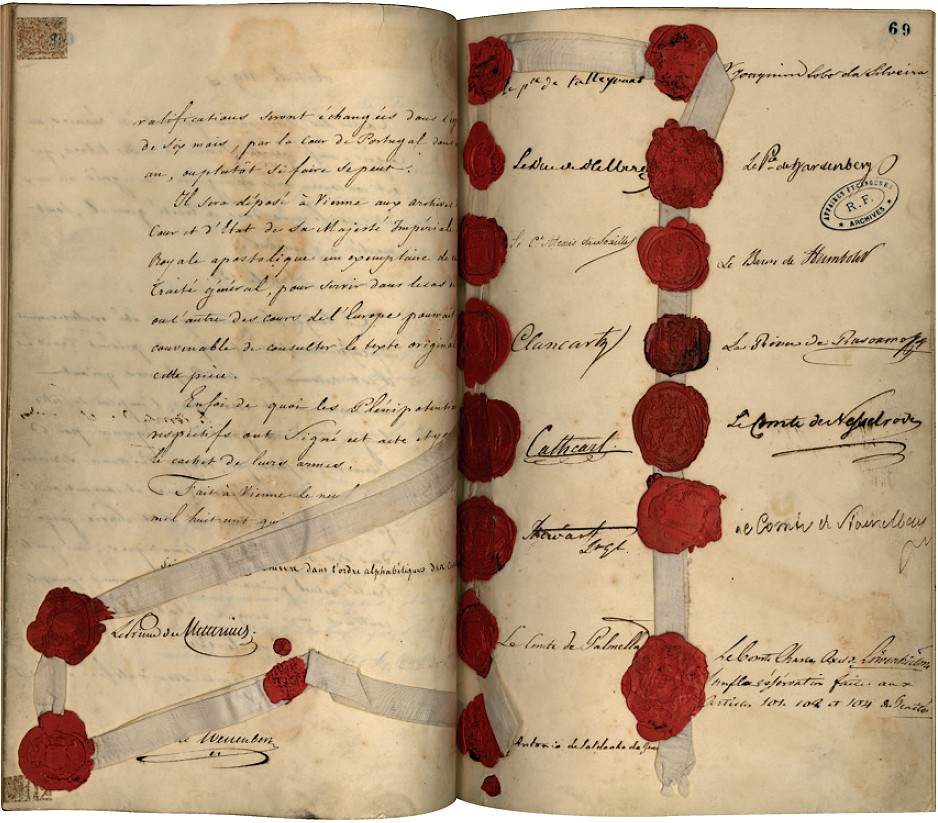 ratifications seront échangées dans l'
de six mois, par la Cour de Portugal dans
an, ou plutôt si faire se peut.
Il sera déposé à Vienne aux archives
Cour et d'État de Sa Majesté Impériale
Royale apostolique un exemplaire de
traité général, pour servir dans le cas
ou l'autre des cours de l'Europe pourrait
convenable de consulter le texte original
cette pièce.
En foi de quoi les Plénipotentia
respectifs ont signé cet acte et y
le cachet de leurs armes.
Fait à Vienne le neu
mil huit cent qui
dans l'ordre alphabétique des Co
Le Prince de Metternich
Wessenberg
69
Le Pce de Talleyrand
Le Duc de Dalberg
Le Cte Alexis de Noailles
Clancarty
Cathcart
Stewart
Le Comte de Palmella
Antonio de Saldanha da Gama
Joaquim Lobo da Silveira
Le Pce de Hardenberg
AFFAIRES ETRANGERES
R.F.
ARCHIVES
Le Baron de Humboldt
Le Prince de Rasoumoffsky
Le Comte de Nesselrode
Le Comte de Stackelberg
Le Comte Charles Axel de Löwenhielm
sauf la réservation faite aux
articles 101. 102 et 104 du Traité.